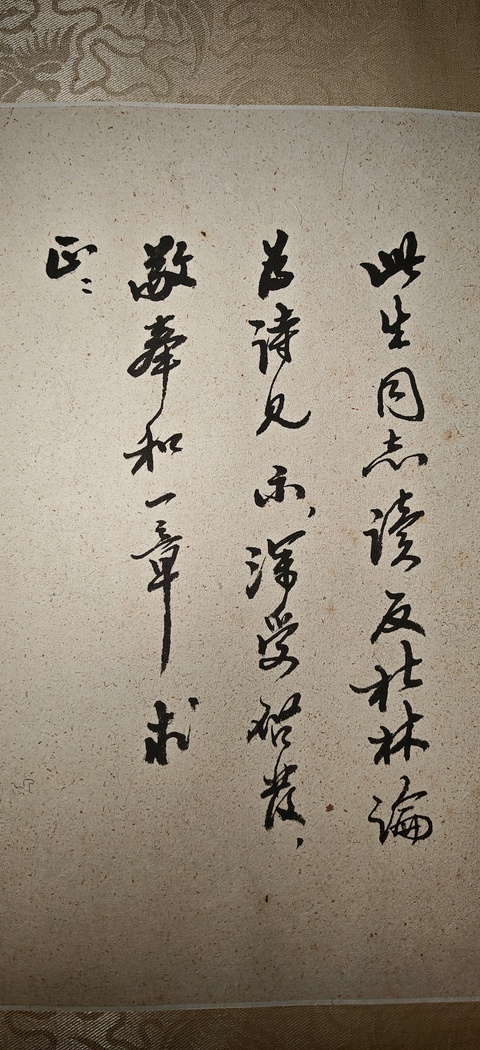 此生同志读反杜林論
为诗见示，深受启发，
敬奉和一章 求
正